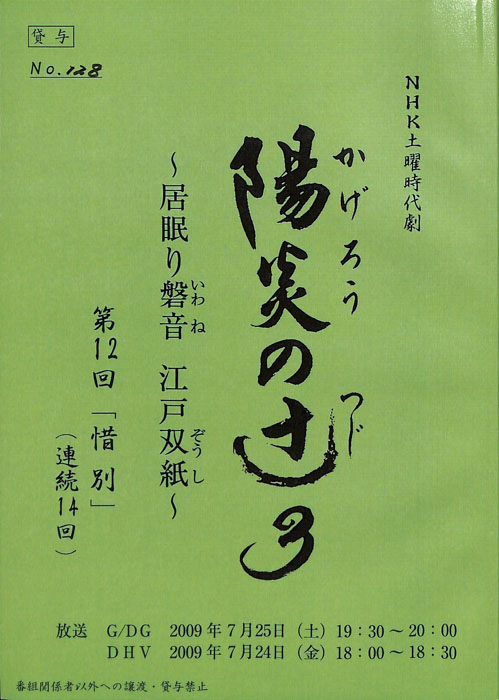 貸与
No.128
NHK土曜時代劇
かげろう つじ
陽炎の辻3
いわね ぞうし
～居眠り磐音 江戸双紙～
第12回「惜別」
（連続14回）
放送 G/DG 2009年7月25日（土）19：30～20：00
DHV 2009年7月24日（金）18：00～18：30
番組関係者以外への譲渡・貸与禁止